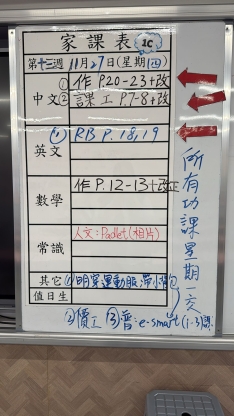 家課表 1C
第十三週 11月27日(星期四)
中文 ① 作 P.20-23+改
② 課工 P.7-8+改
英文 ① RB P.18,19
數學 作 P.12-13+改正
常識 人文：Padlet(相片)
其它 ①明穿運動服,帶小背包
值日生
②價工 ③普:e-smart(1-3)課
所有功課星期一交